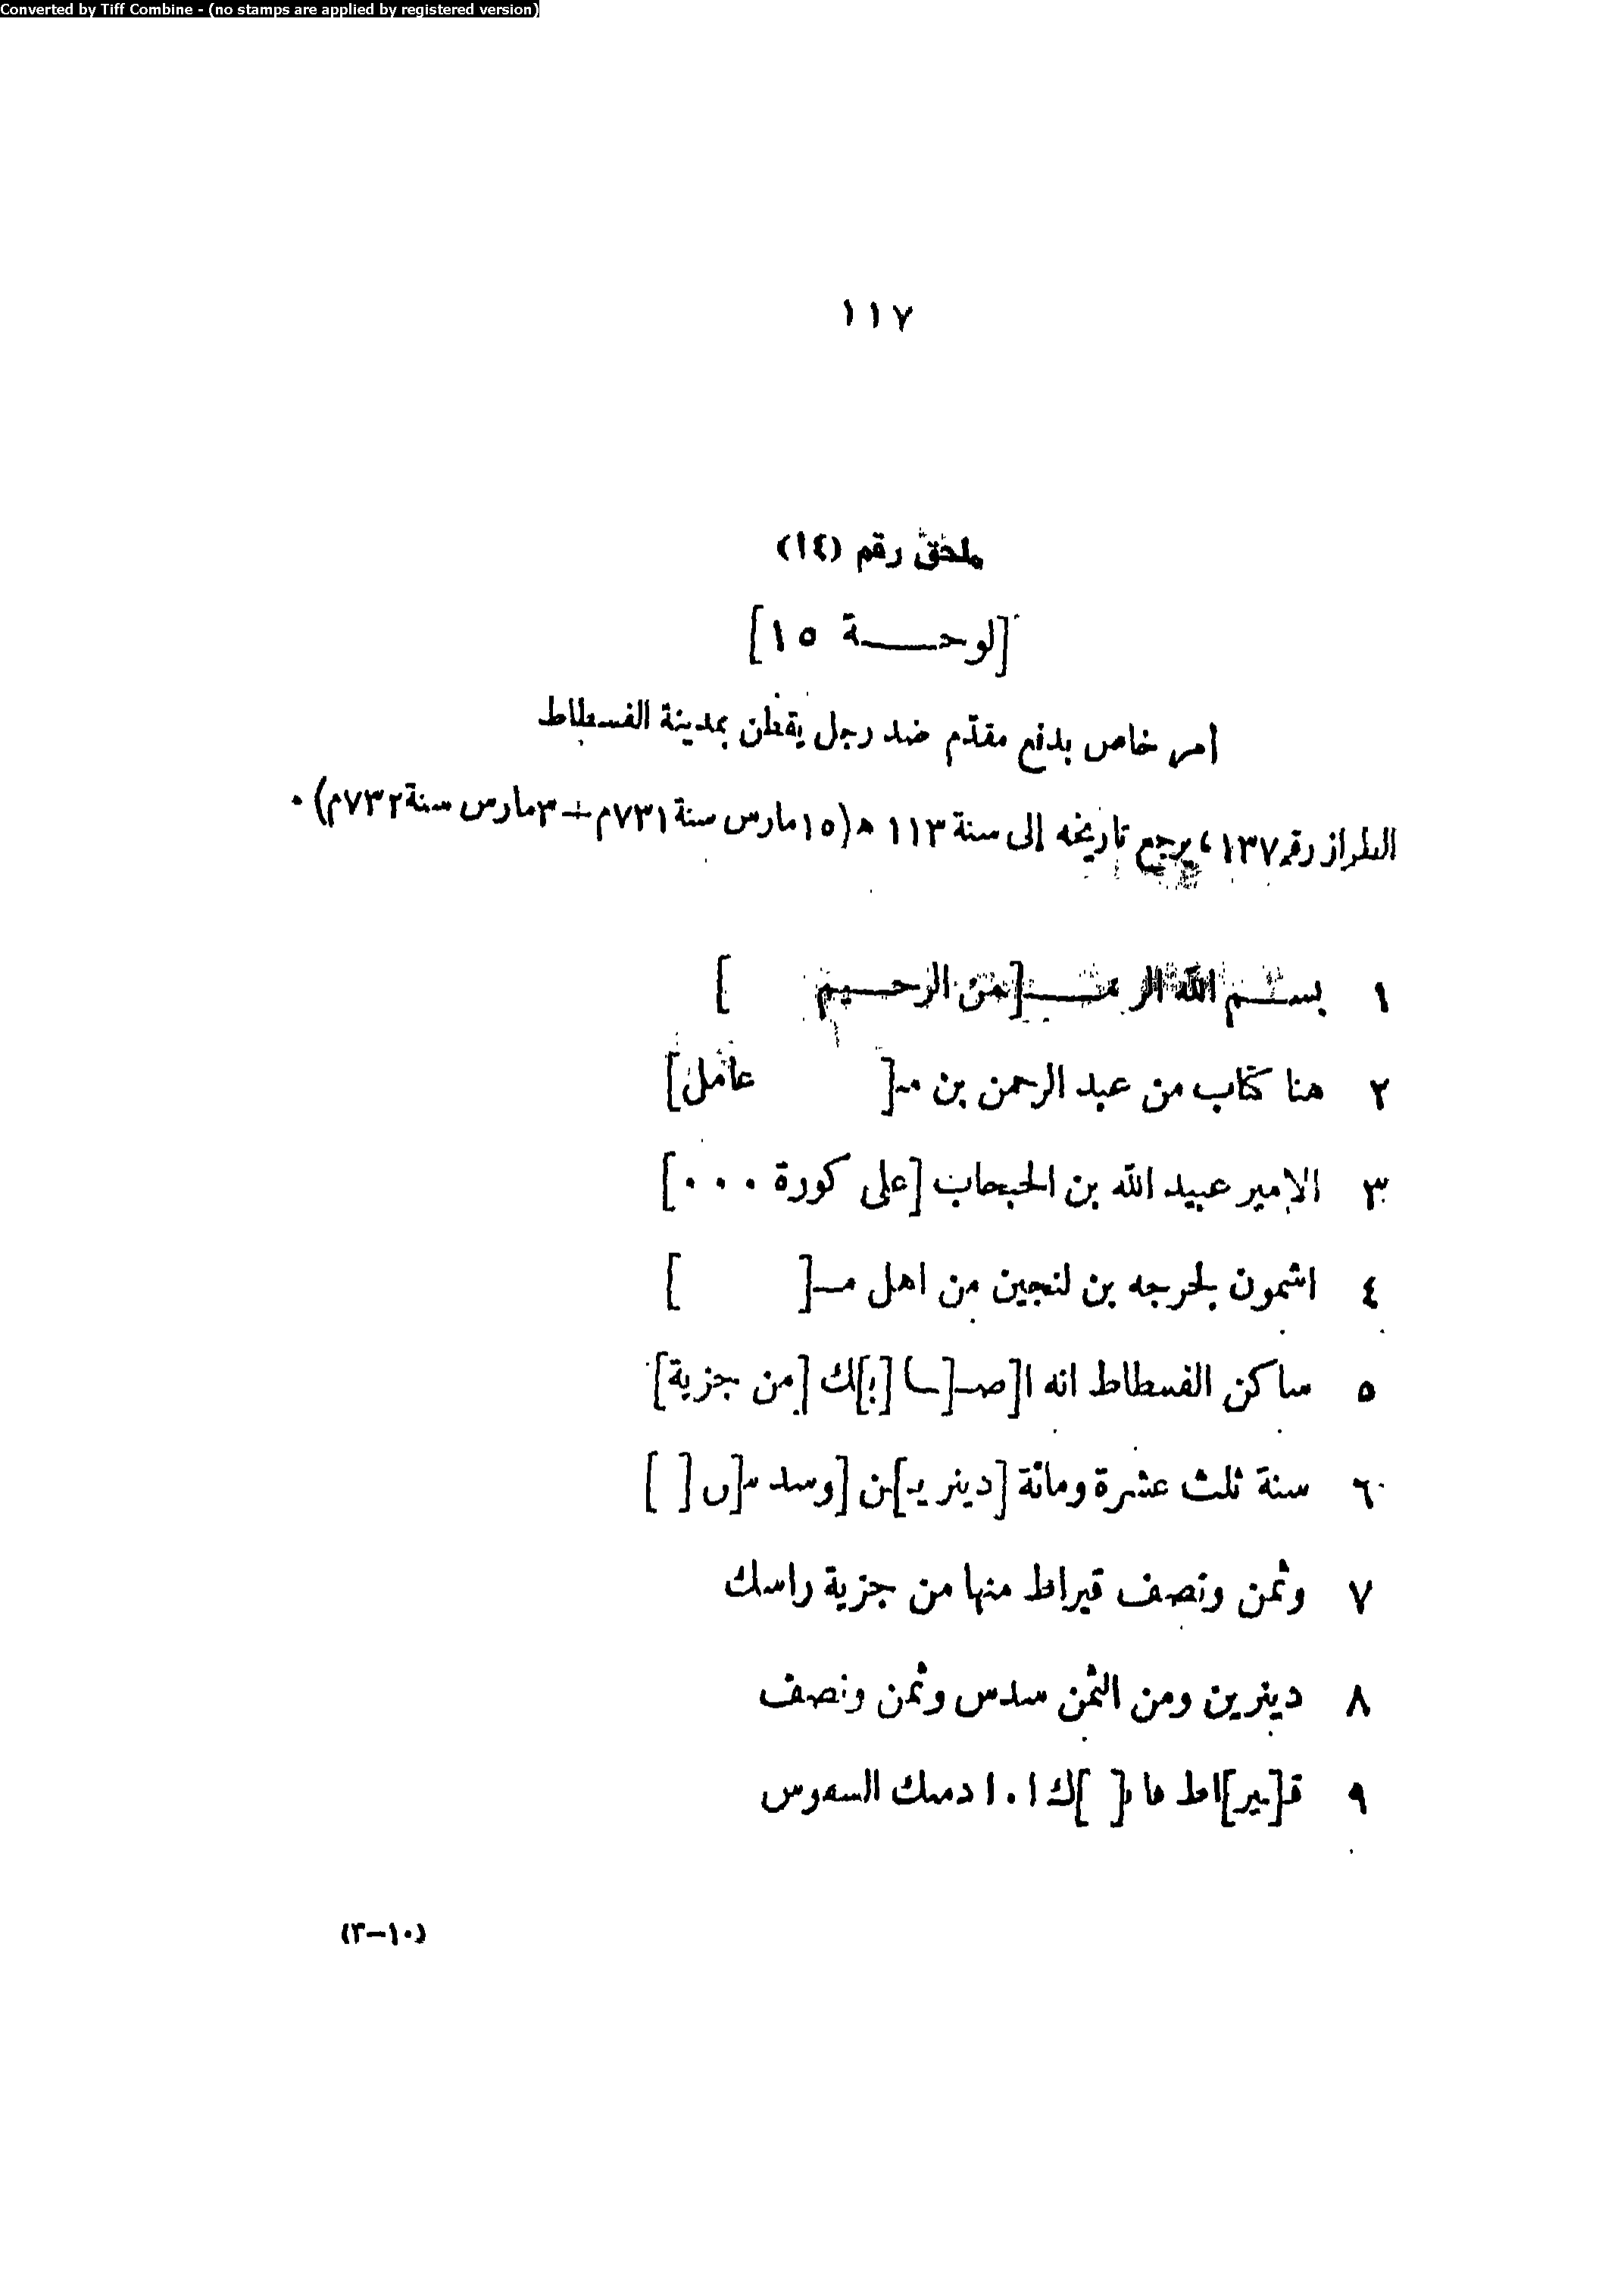 Converted by Tiff Combine - (no stamps are applied by registered version)
١١٧
ملحق رقم (١٤)
[لوحــــة ١٥]
أمر خاص بدفع مقدّم ضد رجل يقطن بمدينة الفسطاط
الطراز رقم ١٣٧ ، يرجع تاريخه إلى سنة ١١٣ ه (١٥ مارس سنة ٧٣١م – ٣ مارس سنة ٧٣٢م) .
١ بســم الله الرحـ[ـمن الرحـــيم ]
٢ هذا كتاب من عبد الرحمن بن مـ[ عامل]
٣ الامير عبيد الله بن الحبحاب [على كورة . . . ]
٤ اشمون لجرجه بن لنجين من اهل مـ[ ]
٥ ساكن الفسطاط انه ا[صـ]ـا[بـ]ك [من جزية]
٦ سنة ثلث عشرة ومائة [دينر يـ]ـن [وسد س]
٧ وثمن ونصف قيراط منها من جزية راسك
٨ دينرين ومن الثمن سدس وثمن ونصف
٩ قـ[ـير]اط
(١٠–٣)